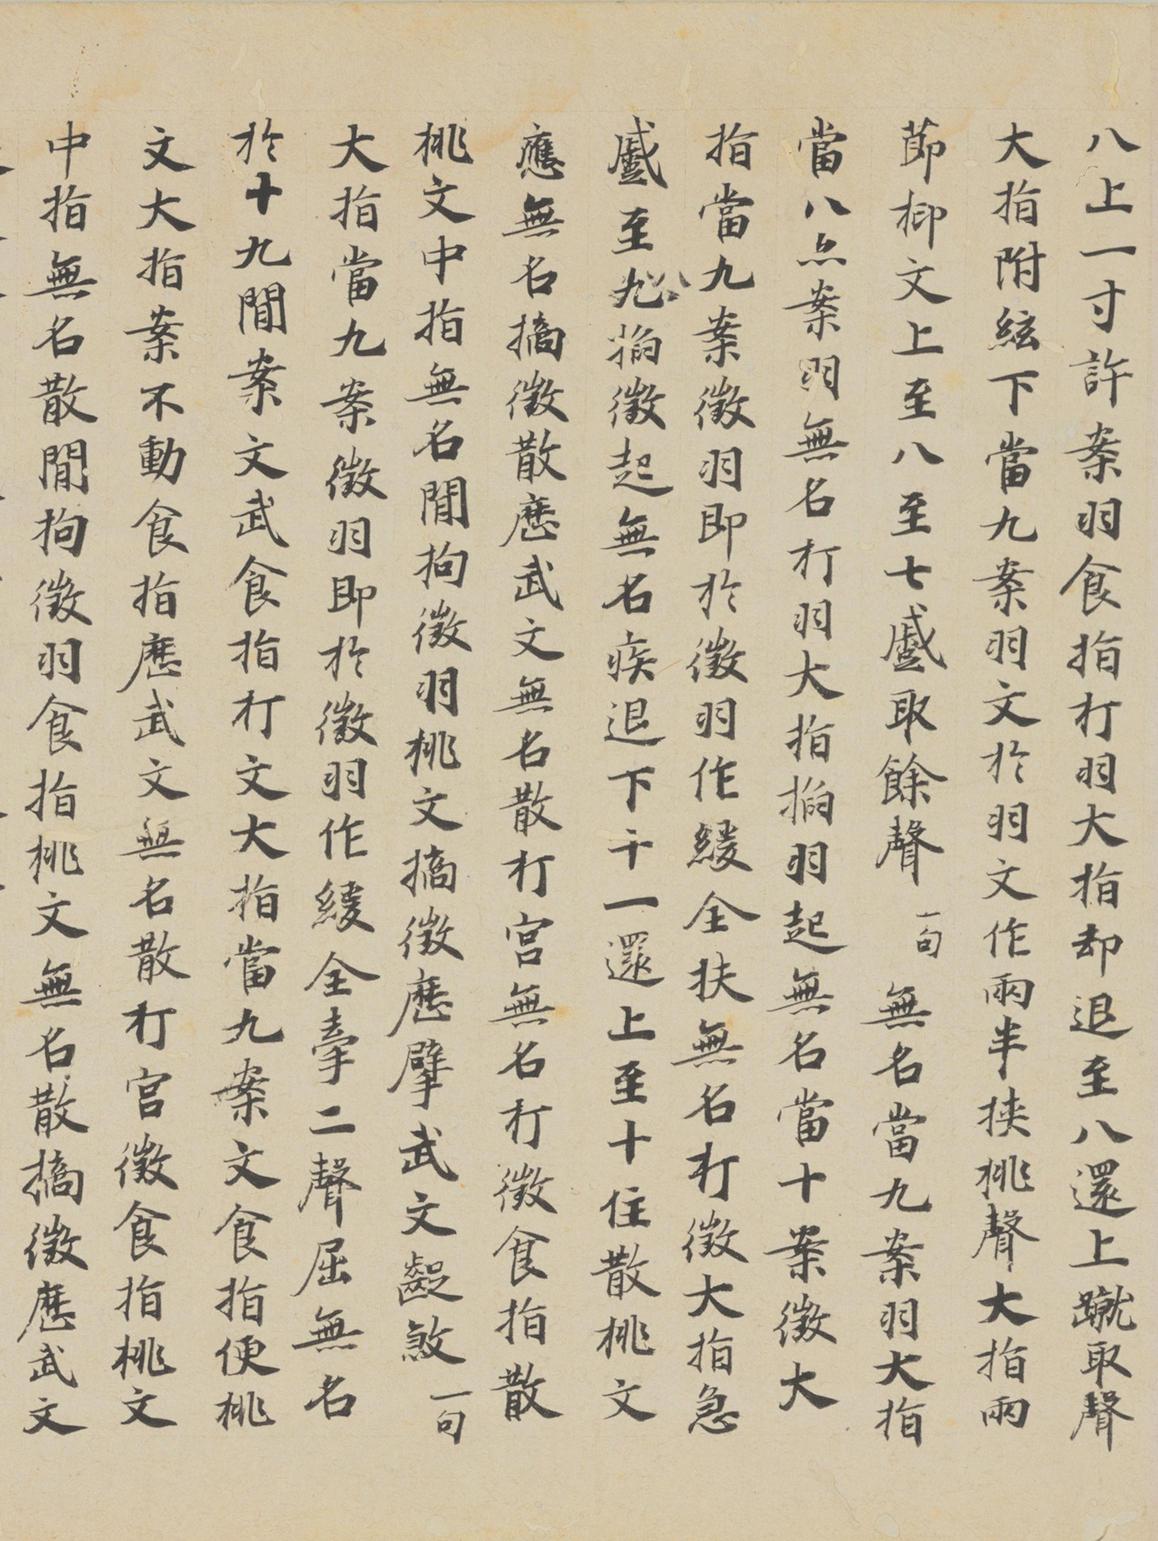 八上一寸許案羽食指打羽大指却退至八還上蹴取聲
大指附絃下當九案羽文於羽文作兩半挾桃聲大指兩
節柳文上至八至七蹙取餘聲一句無名當九案羽大指
當八点案羽無名打羽大指搊羽起無名當十案徵大
指當九案徵羽即於徵羽作緩全扶無名打徵大指急
蹙至九八搊徵起無名疾退下十一還上至十住散桃文
應無名擿徵散應武文無名散打宮無名打徵食指散
桃文中指無名閒拘徵羽桃文擿徵應擘武文齪煞一句
大指當九案徵羽即於徵羽作緩全牽二聲屈無名
於十九閒案文武食指打文大指當九案文食指便桃
文大指案不動食指應武文無名散打宮徵食指桃文
中指無名散閒拘徵羽食指桃文無名散擿徵應武文